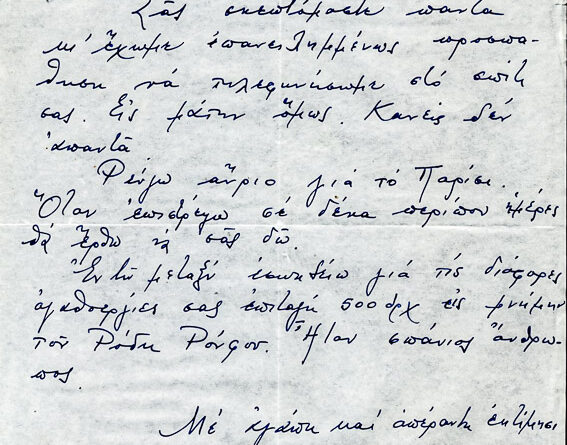 Σᾶς σκεπτόμαστε πάντα
κι' ἔχουμε ἐπανειλημμένως προσπα-
θήσει νά τηλεφωνήσωμε στό σπίτι
σας. Εἰς μάτην ὅμως. Κανείς δέν
ἀπαντᾶ
Φεύγω αὔριο γιά τό Παρίσι.
Ὅταν ἐπιστρέψω σέ δέκα περίπου ἡμέρες
θά ἔρθω νά σᾶς δῶ.
Ἐν τῷ μεταξύ ἐσωκλείω γιά τίς διάφορες
ἀγαθοεργίες σας ἐπιταγή 500 δρχ εἰς μνήμην
τοῦ Ρόδη Ρούφου. Ἦταν σπάνιος ἄνθρω-
πος.
Μέ ἀγάπη καί ἀπέραντη ἐκτίμηση